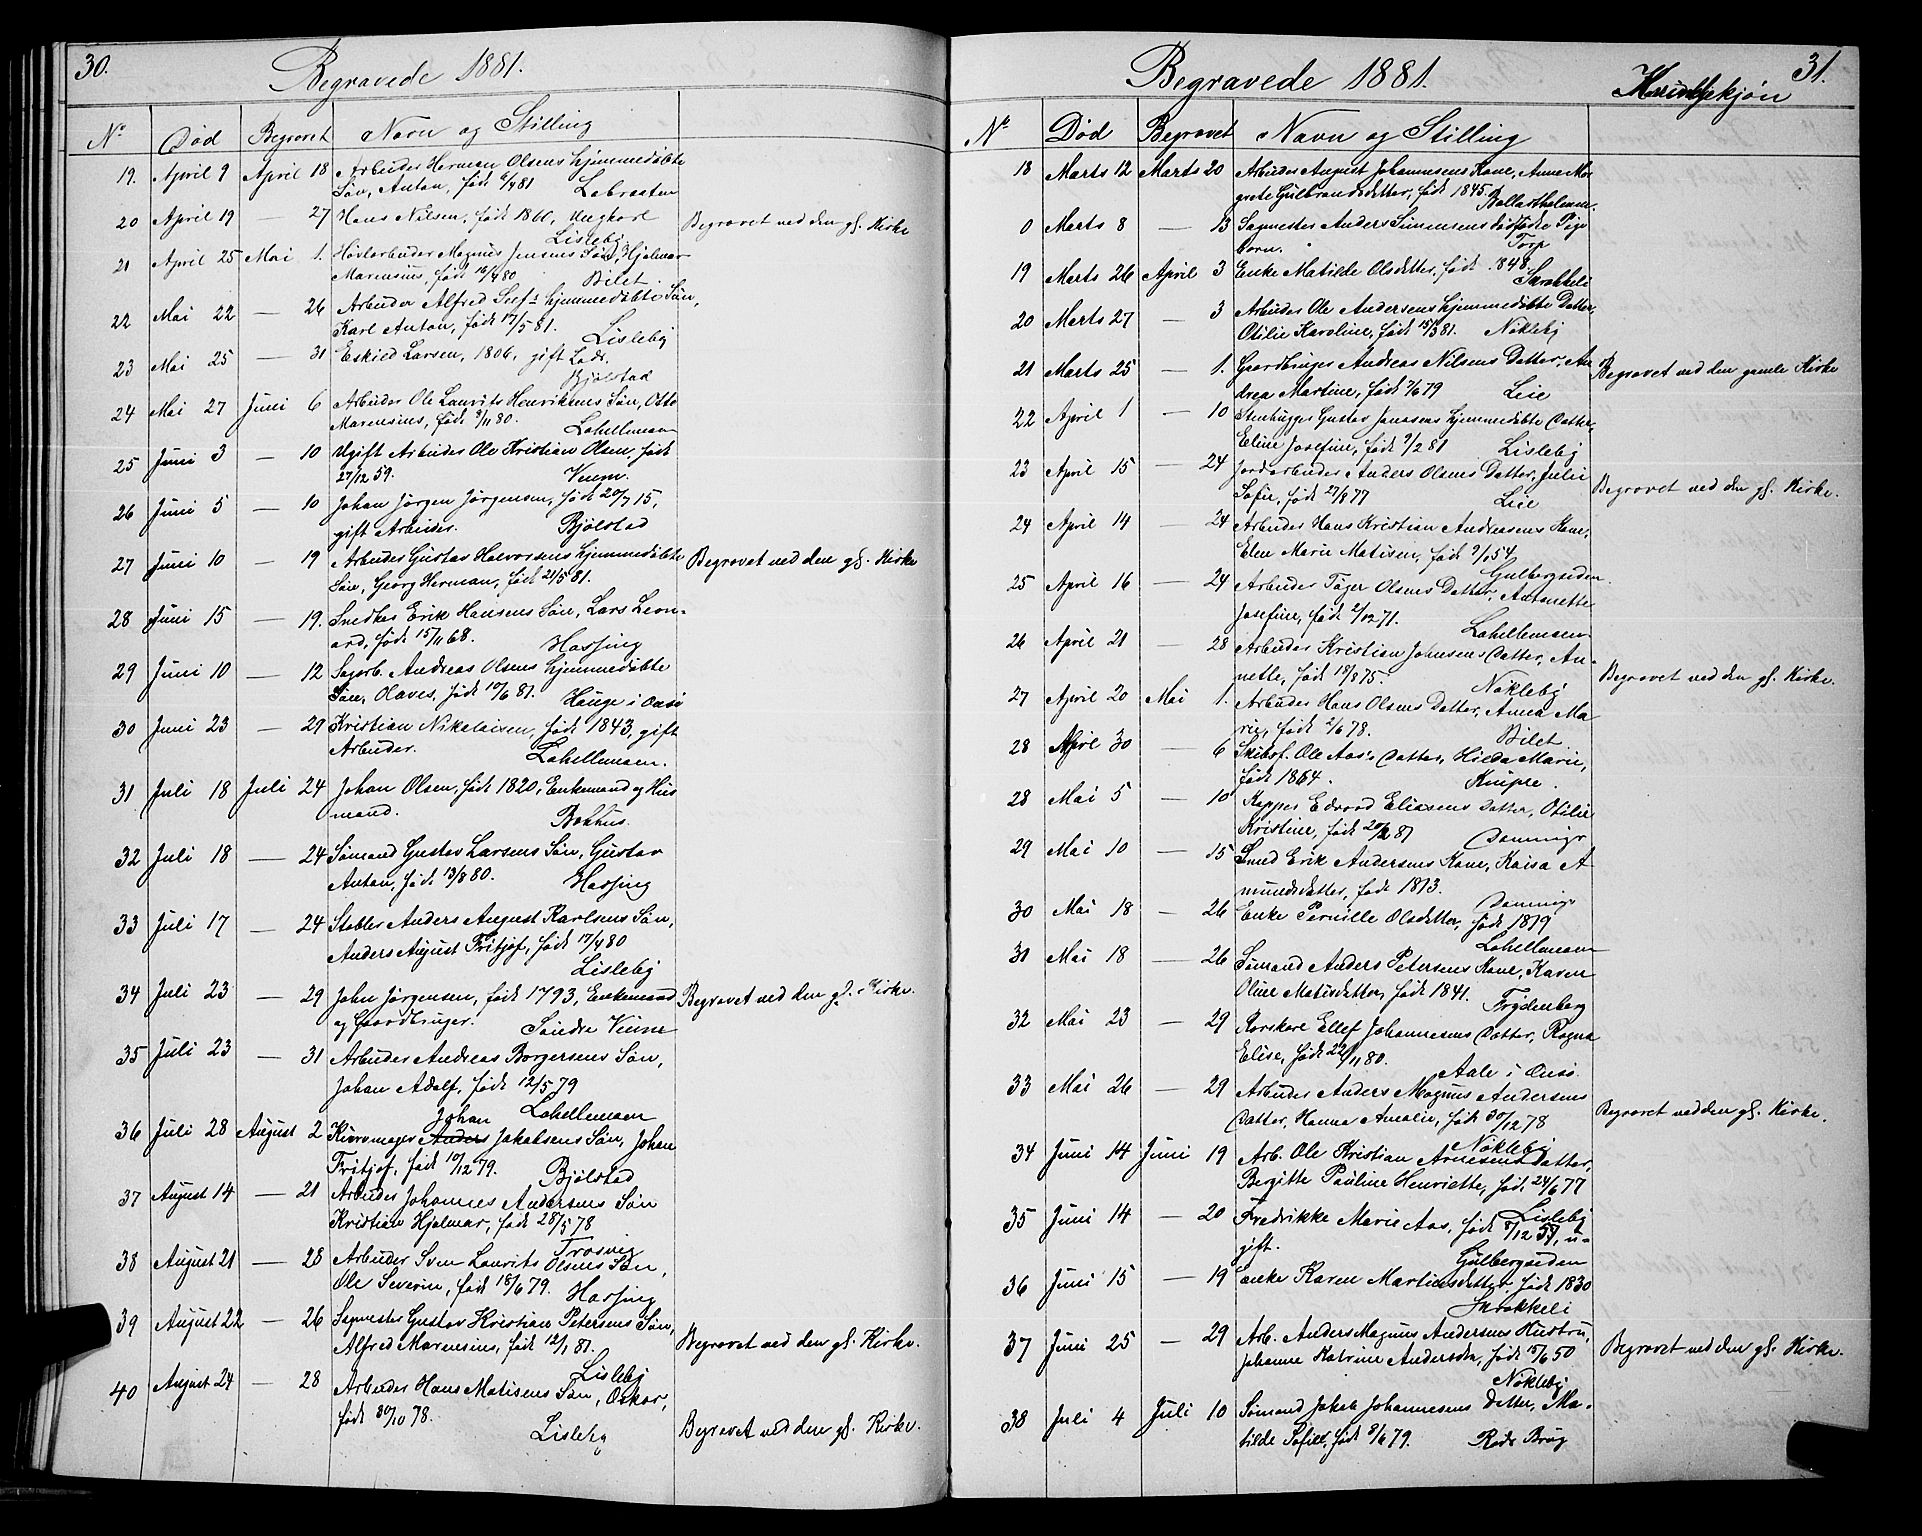 30.
Begravede 1881.
No Død Begravet Navn og Stilling
19. April 9 April 18 Arbeider Herman Olsens hjemmedøbte
Søn, Anton, født 6/4 81
20 April 19 — 27 Hans Nilsen, født 1860, Ungkarl Begravet ved den gl. Kirke
Lisleby
21 April 25 Mai 1. Høvlarbeider Magnus Jensens Søn, Hjalmar
Marensius, født 16/4 80 Bilet
22 Mai 22 — 26 Arbeider Alfred hjemmedøbte Søn,
Karl Anton, født 17/5 81.
Lisleby
23 Mai 25 — 31 Eskild Larsen, 1806, gift Lods.
Bjølstad
24 Mai 27 Juni 6 Arbeider Ole Laurits Henriksens Søn, Otto
Marensius, født 9/11 80.
Lahellemoen
25 Juni 3 — 10 Ugift Arbeider Ole Kristian Olsen, født
27/12 59. Veum.
26 Juni 5 — 10 Johan Jørgen Jørgensen, født 20/7 15,
gift Arbeider. Bjølstad
27 Juni 10 — 19 Arbeider Gustav Halvorsens hjemmedøbte Begravet ved den gl. Kirke
Søn, Georg Herman, født 21/5 81.
28 Juni 15 — 19. Snedker Erik Hansens Søn, Lars Leon-
ard, født 15/11 68. Hassing
29 Juni 10 — 12 Sagarb. Andreas Olsens hjemmedøbte
Søn, Olaves, født 10/6 81. Hauge i Onsø
30 Juni 23 — 29 Kristian Nikolaisen, født 1843, gift
Arbeider. Lahellemoen.
31 Juli 18 Juli 24 Johan Olsen, født 1820, Enkemand og Hus
mand. Bakhus.
32 Juli 18 — 24 Sømand Gustav Larsens Søn, Gustav
Anton, født 13/8 80. Hassing
33 Juli 17 — 24 Stabler Anders August Karlsens Søn,
Anders August Fritjof, født 17/4 80
Lisleby
34 Juli 23 — 29 John Jørgensen, født 1793, Enkemand Begravet ved den gl. Kirke.
og Gaardbruger. Søndre Veum
35 Juli 23 — 31 Arbeider Andreas Borgersens Søn,
Johan Adolf, født 12/5 79
Lahellemoen
Johan
36 Juli 28 August 2 Kurvmager Anders Jakobsens Søn, Johan
Fritjof, født 10/12 79. Bjølstad
37 August 14 — 21 Arbeider Johannes Andersens Søn
Kristian Hjalmar, født 28/5 78
Trosvig
38 August 21 — 28 Arbeider Sven Laurits Olsens Søn,
Ole Severin, født 18/6 79. Hassing
39 August 22 — 26 Sagmester Gustav Kristian Petersens Søn,
Alfred Marensius, født 12/1 81. Begravet ved den gl. Kirke.
Lisleby
40 August 24 — 28 Arbeider Hans Matisens Søn, Oskar,
født 30/10 78. Begravet ved den gl. Kirke.
Lisleby
31.
Begravede 1881.
Kvindekjøn
No Død Begravet Navn og Stilling
18 Marts 12 Marts 20 Arbeider August Johannesens Kone, Anne Mar
grete Gulbrandsdatter, født 1845.
0 Marts 8 — 13 Sagmester Anders Simensens dødfødte Pige
barn. Torp
19 Marts 26 April 3 Enke Matilde Olsdatter, født 1848.
20 Marts 27 — 3 Arbeider Ole Andersens hjemmedøbte Datter,
Otilie Karoline, født 15/3 81. Nøkleby
21 Marts 25 — 1. Gaardbruger Andreas Nilsens Datter, An Begravet ved den gamle Kirke
drea Martine, født 7/6 79 Lie
22 April 1 — 10 Stenhugger Gustav Jonasens hjemmedøbte Datter,
Eline Josefine, født 9/2 81 Lisleby
23 April 15 — 24 Jordarbeider Anders Olsens Datter, Julie Begravet ved den gl. Kirke.
Sofie, født 27/8 77 Lie
24 April 14 — 24 Arbeider Hans Kristian Andreasens Kone,
Elen Marie Matisen, født 9/1 54,
Gulbergseden.
25 April 16 — 24 Arbeider Tøger Olsens Datter, Antonette
Josefine, født 2/12 71.
Lahellemoen
26 April 21 — 28 Arbeider Kristian Johnsens Datter, An-
nette, født 18/8 75. Begravet ved den gl. Kirke.
Nøkleby
27 April 20 Mai 1. Arbeider Hans Olsens Datter, Anna Ma
rie, født 2/6 78. Bilet
28 April 30 — 6 Skibsf. Ole Aas's Datter, Hilda Marie,
født 1864. Knipre.
28 Mai 5 — 10 Kopper Edvard Eliasens Datter, Otilie
Kristine, født 20/2 81
29 Mai 10 — 15 Smed Erik Andersens Kone, Kaisa A
mundsdatter, født 1813.
30 Mai 18 — 26 Enke Pernille Olsdatter, født 1819
Lahellemoen
31 Mai 18 — 26 Sømand Anders Petersens Kone, Karen
Oline Matisdatter, født 1841. Frydenberg
32 Mai 23 — 29 Korskare Ellef Johannesens Datter, Ragna
Elise, født 22/11 80.
Aale i Onsø.
33 Mai 26 — 29 Arbeider Anders Magnus Andersens
Datter, Hanna Amalie, født 30/12 78 Begravet ved den gl. Kirke.
Nøkleby
34 Juni 14 Juni 19 Arb. Ole Kristian Arnesens Datter,
Begitte Pauline Henriette, født 24/6 77
Lisleby
35 Juni 14 — 20 Fredrikke Marie Aas, født 8/12 57, u-
gift. Gulbergseden
36 Juni 15 — 19 Enke Karen Martinsdatter, født 1830
37 Juni 25 — 29 Arb. Anders Magnus Andersens Hustru, Begravet ved den gl. Kirke.
Johanne Katrine Andersdtr, født 15/6 50
Nøkleby
38 Juli 4 Juli 10 Sømand Jakob Johannesens Datter, Ma-
tilde Sofie, født 8/6 79. Røds Brug